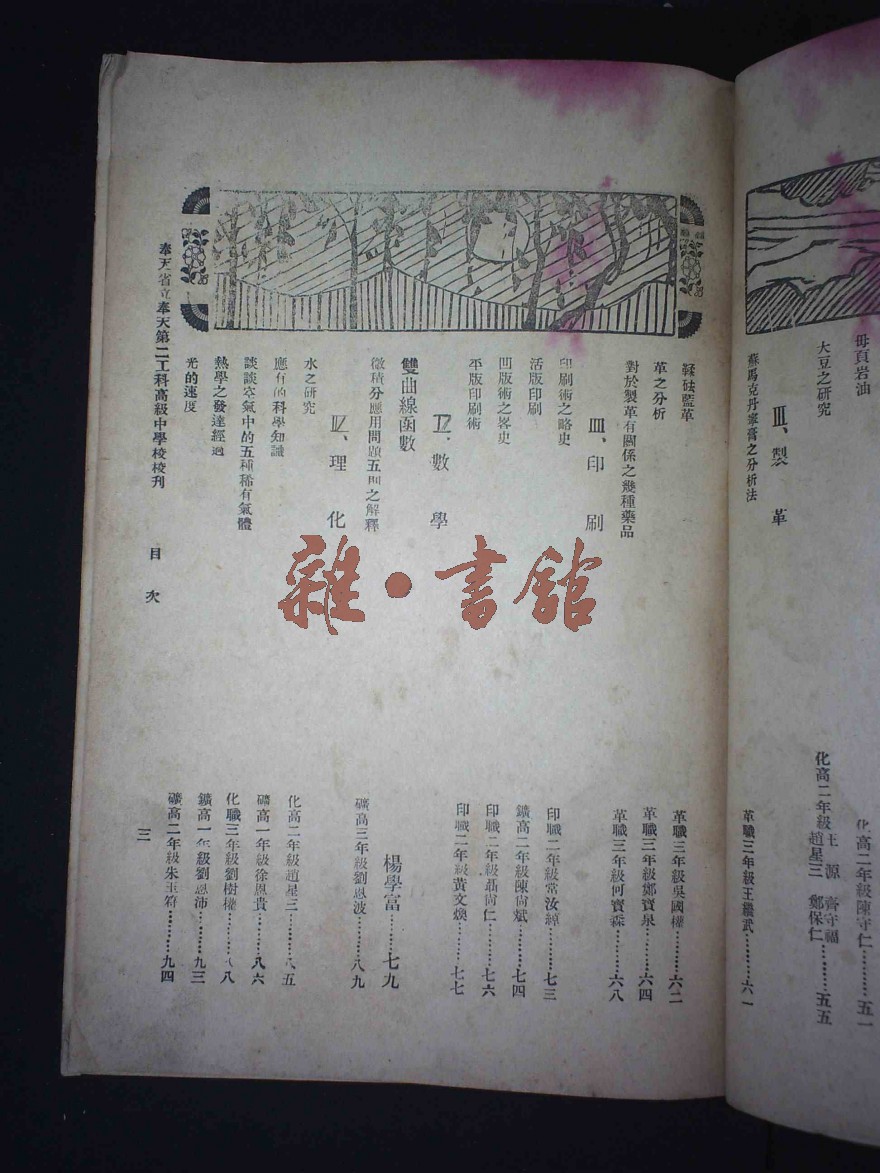 母頁岩油
化高二年級陳守仁………五一
大豆之研究
化高二年級王源 齊守福
趙星三 鄭保仁………五五
Ⅲ、製革
蘇馬克丹寧膏之分析法
革職三年級王繼武………六一
鞣硋藍革
革職三年級吳國權………六二
革之分析
革職三年級鄭寶泉………六四
對於製革有關係之幾種藥品
革職三年級何寶霖………六八
Ⅲ、印刷
印刷術之略史
印職二年級常汝綽………七三
活版印刷
鑛高二年級陳尚斌………七四
凹版術之畧史
印職二年級聶尚仁………七六
平版印刷術
印職二年級黃文煥………七七
Ⅳ、數學
雙曲線函數
楊學富………七九
微積分應用問題五問之解釋
礦高三年級劉恩波………八九
Ⅳ、理化
水之研究
化高二年級趙星三………八五
應有的科學知識
礦高一年級徐恩貴………八六
談談空氣中的五種稀有氣體
化職三年級劉樹權………八八
熱學之發達經過
鑛高一年級劉恩沛………九三
光的速度
礦高二年級朱玉………九四
奉天省立奉天第二工科高級中學校校刊
目次
三
雜·書館